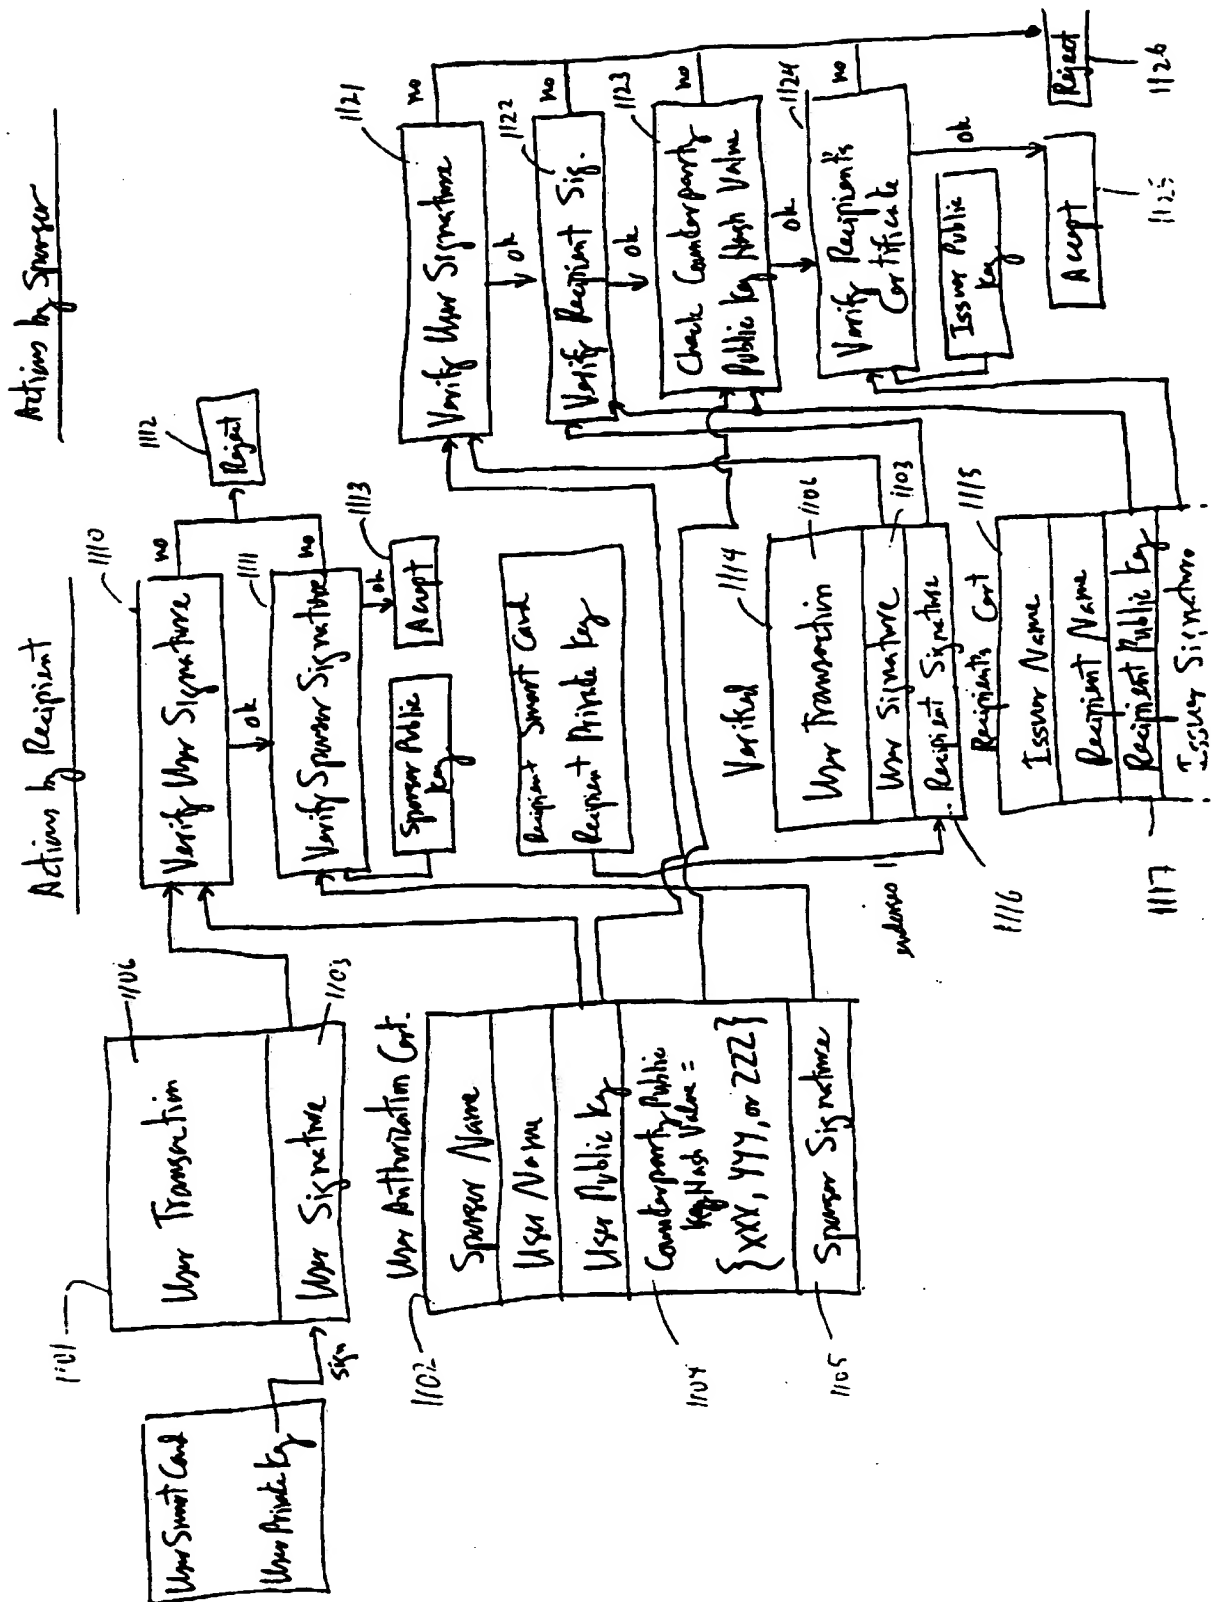 Actions by Recipient
Actions by Sponsor
User Smart Card
User Private Key
sign
1101
User Transaction
1106
User Signature
1103
User Authorization Cert.
1102
Sponsor Name
User Name
User Public Key
Counterparty Public
Key Hash Value =
{XXX, YYY, or ZZZ}
1104
Sponsor Signature
1105
1110
Verify User Signature
no
ok
1111
Verify Sponsor Signature
no
ok
1112
Reject
1113
Accept
Sponsor Public
Key
Recipient Smart Card
Recipient Private Key
Verified
1114
User Transaction
1106
User Signature
1103
Recipient Signature
1116
Recipients Cert
1115
Issuer Name
Recipient Name
Recipient Public Key
1117
Issuer Signature
1121
Verify User Signature
no
ok
1122
Verify Recipient Sig.
no
ok
1123
Check Counterparty
Public Key Hash Value
no
ok
1124
Verify Recipient's
Certificate
no
ok
Issuer Public
Key
Accept
1125
Reject
1126